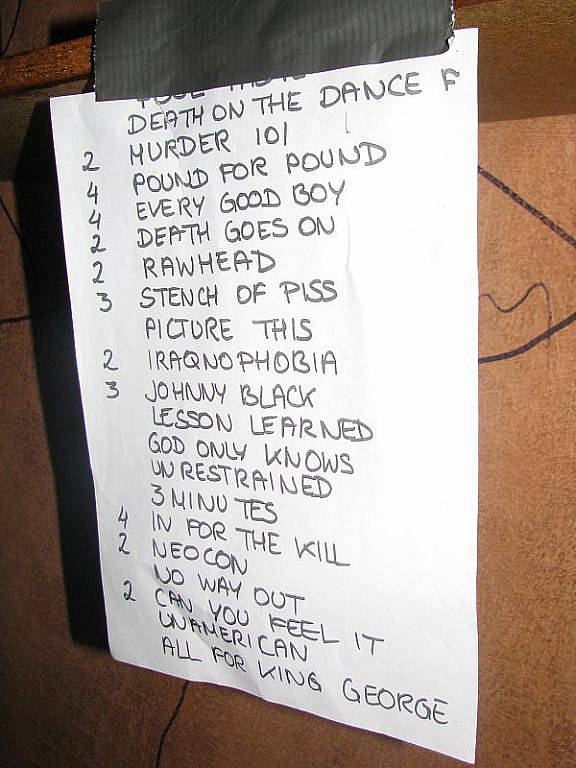 DEATH ON THE DANCE F
2 MURDER 101
4 POUND FOR POUND
4 EVERY GOOD BOY
2 DEATH GOES ON
2 RAWHEAD
3 STENCH OF PISS
PICTURE THIS
2 IRAQNOPHOBIA
3 JOHNNY BLACK
LESSON LEARNED
GOD ONLY KNOWS
UNRESTRAINED
3 MINUTES
4 IN FOR THE KILL
2 NEOCON
NO WAY OUT
2 CAN YOU FEEL IT
UNAMERICAN
ALL FOR KING GEORGE